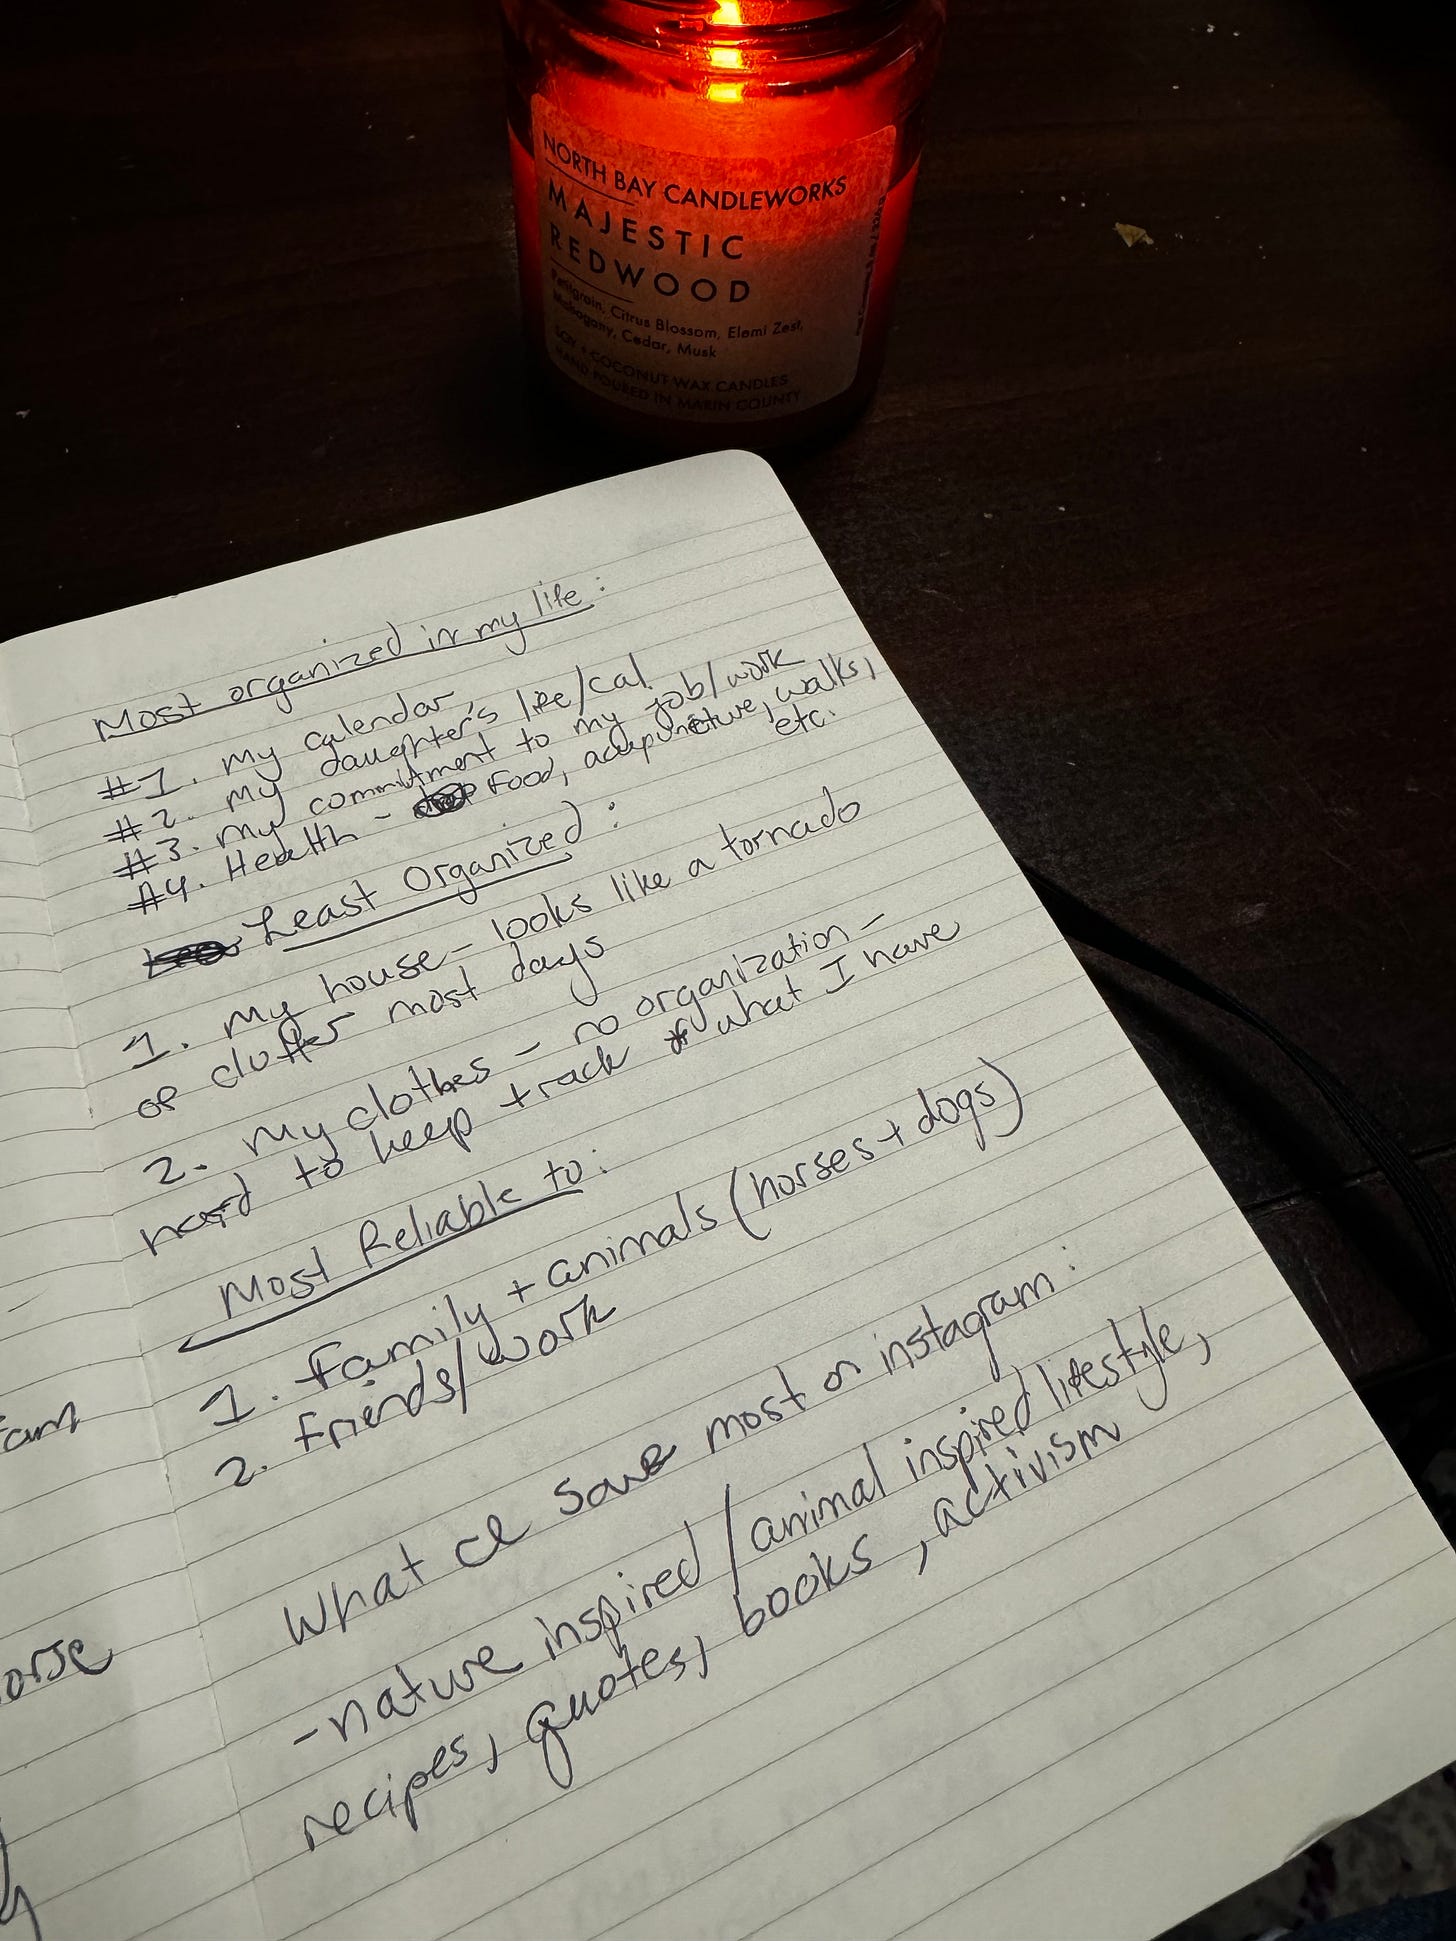 NORTH BAY CANDLEWORKS
MAJESTIC
REDWOOD
Petitgrain, Citrus Blossom, Elemi Zest,
Mahogany, Cedar, Musk
SOY + COCONUT WAX CANDLES
HAND POURED IN MARIN COUNTY
Most organized in my life:
#1. my calendar
#2. my daughter's life/cal.
#3. my commitment to my job/work
#4. Health - Food, acupuncture, walks,
etc.
Least Organized:
1. my house - looks like a tornado
of clutter most days
2. my clothes - no organization -
hard to keep track of what I have
Most Reliable to:
1. family + animals (horses + dogs)
2. friends/work
What I save most on instagram:
- nature inspired/animal inspired lifestyle,
recipes, quotes, books, activism